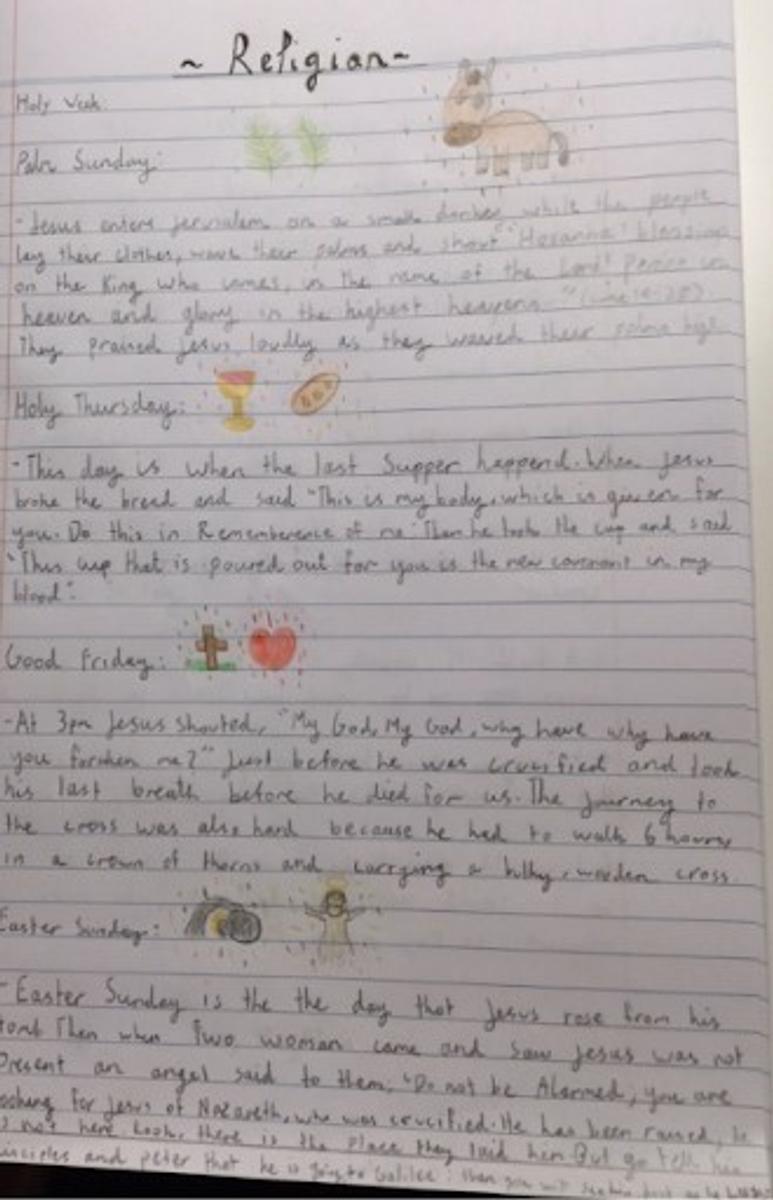 ~ Religian ~
Holy Week:
Palm Sunday:
- Jesus enters jerusalem on a small donkey while the people
lay their clothes, wave their palms and shout "Hosanna! blessings
on the King who comes, in the name of the Lord! Peace in
heaven and glory in the highest heavens."
They praised Jesus loudly as they waved their palms high.
Holy Thursday:
- This day is when the last Supper happend. When Jesus
broke the bread and said "This is my body, which is given for
you. Do this in Rememberence of me". Then he took the cup and said
"This cup that is poured out for you is the new covenant in my
blood".
Good Friday:
- At 3pm Jesus shouted, "My God, My God, why have why have
you forsaken me?" just before he was crucified and took
his last breath before he died for us. The journey to
the cross was also hard because he had to walk 6 hours
in a crown of thorns and carrying a bulky, wooden cross.
Easter Sunday:
- Easter Sunday is the the day that Jesus rose from his
tomb Then when Two woman came and saw Jesus was not
Present an angel said to them, "Do not be Alarmed, you are
looking for Jesus of Nazareth, who was crucified. He has been raised, he
is not here Look, there is the place they laid him But go tell his
disciples and peter that he is going to Galilee: then you will